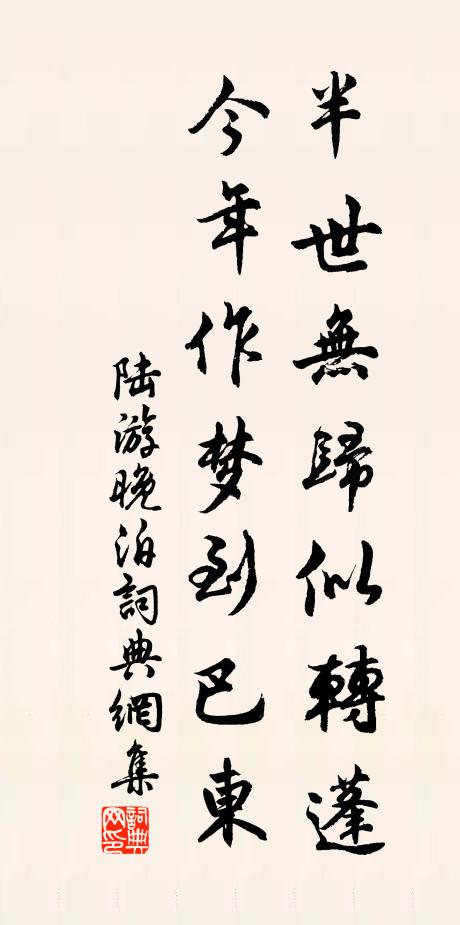 半世無歸似轉蓬
今年作梦到巴東
陆游晚泊詞典網集
詞典
网印